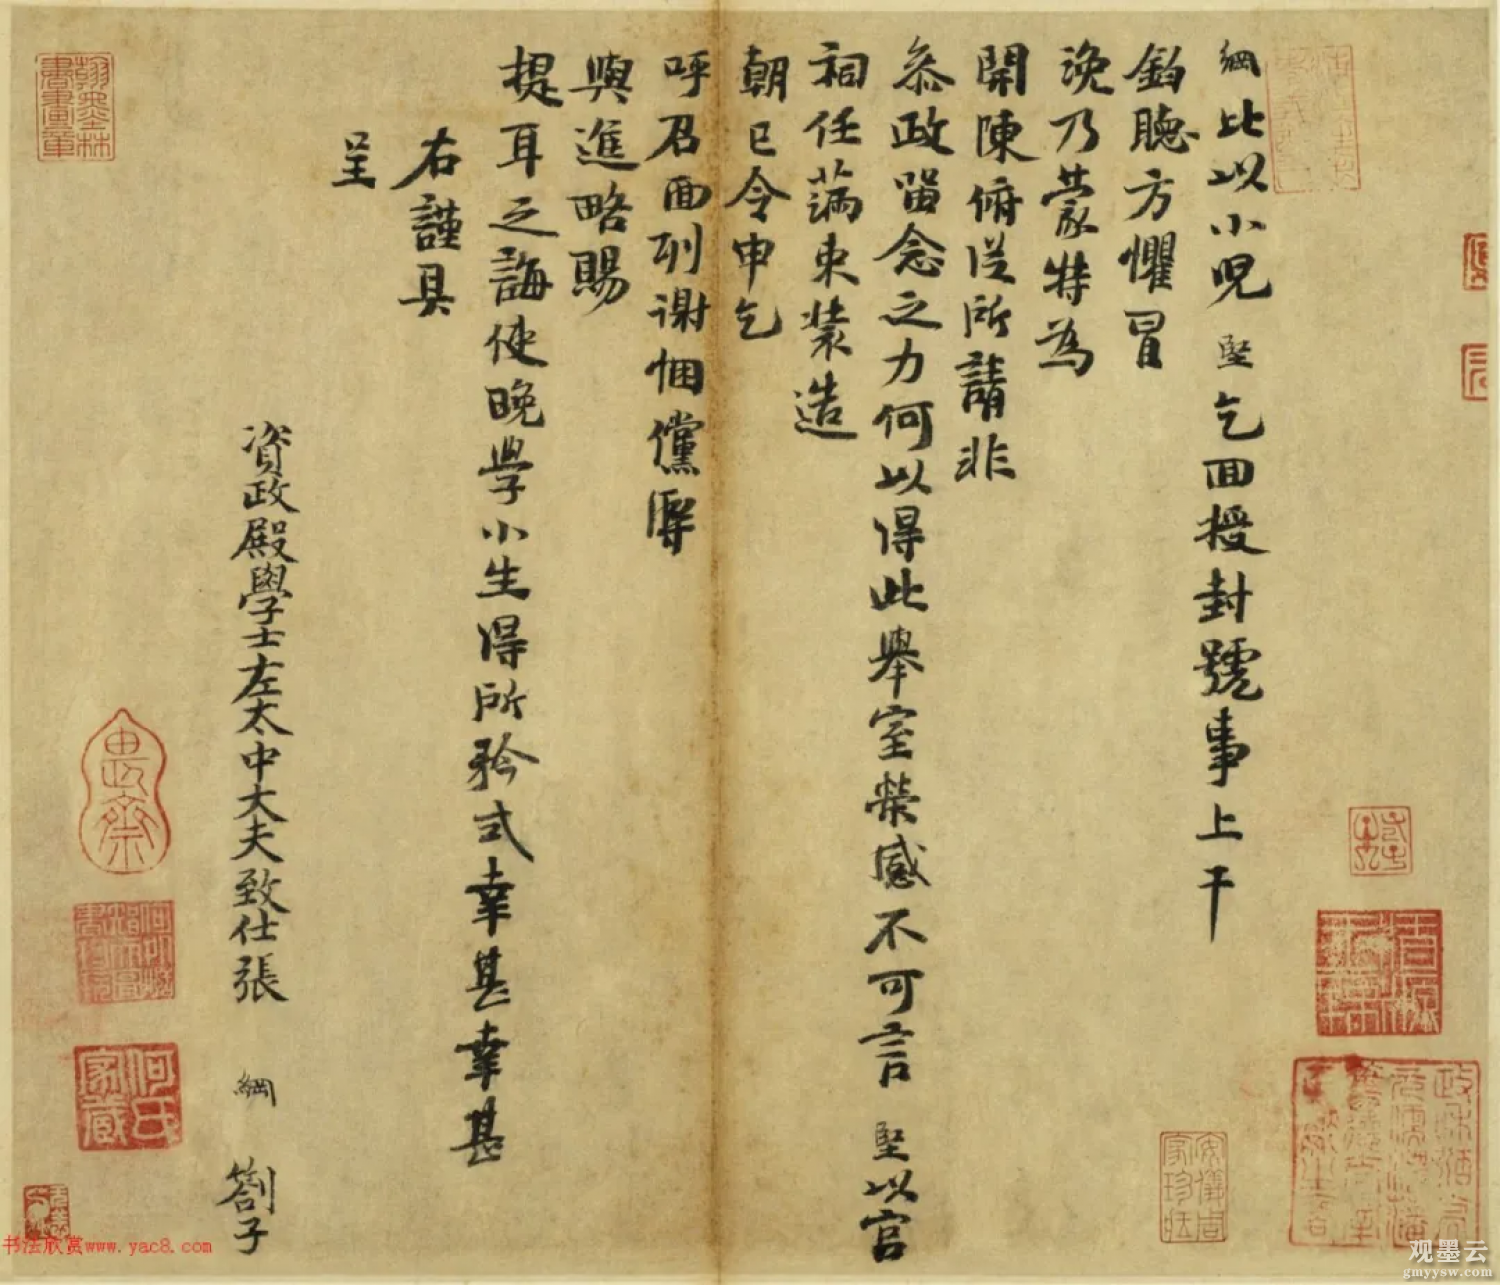 綱比以小児堅乞回授封號事上干
鈞聽方懼冒
浼乃蒙特為
開陳俯從所請非
叅政留念之力何以得此舉室榮感不可言堅以官
祠任滿束裝造
朝已令申乞
呼召面刓謝悃儻辱
與進略賜
提耳之誨使晚學小生得所矜式幸甚幸甚
右謹具
呈
資政殿學士左太中大夫致仕張綱劄子
翰墨林書畫章
何氏家藏
安儀周家珍藏
书法欣赏www.yac8.com
观墨云
gmyysw.com